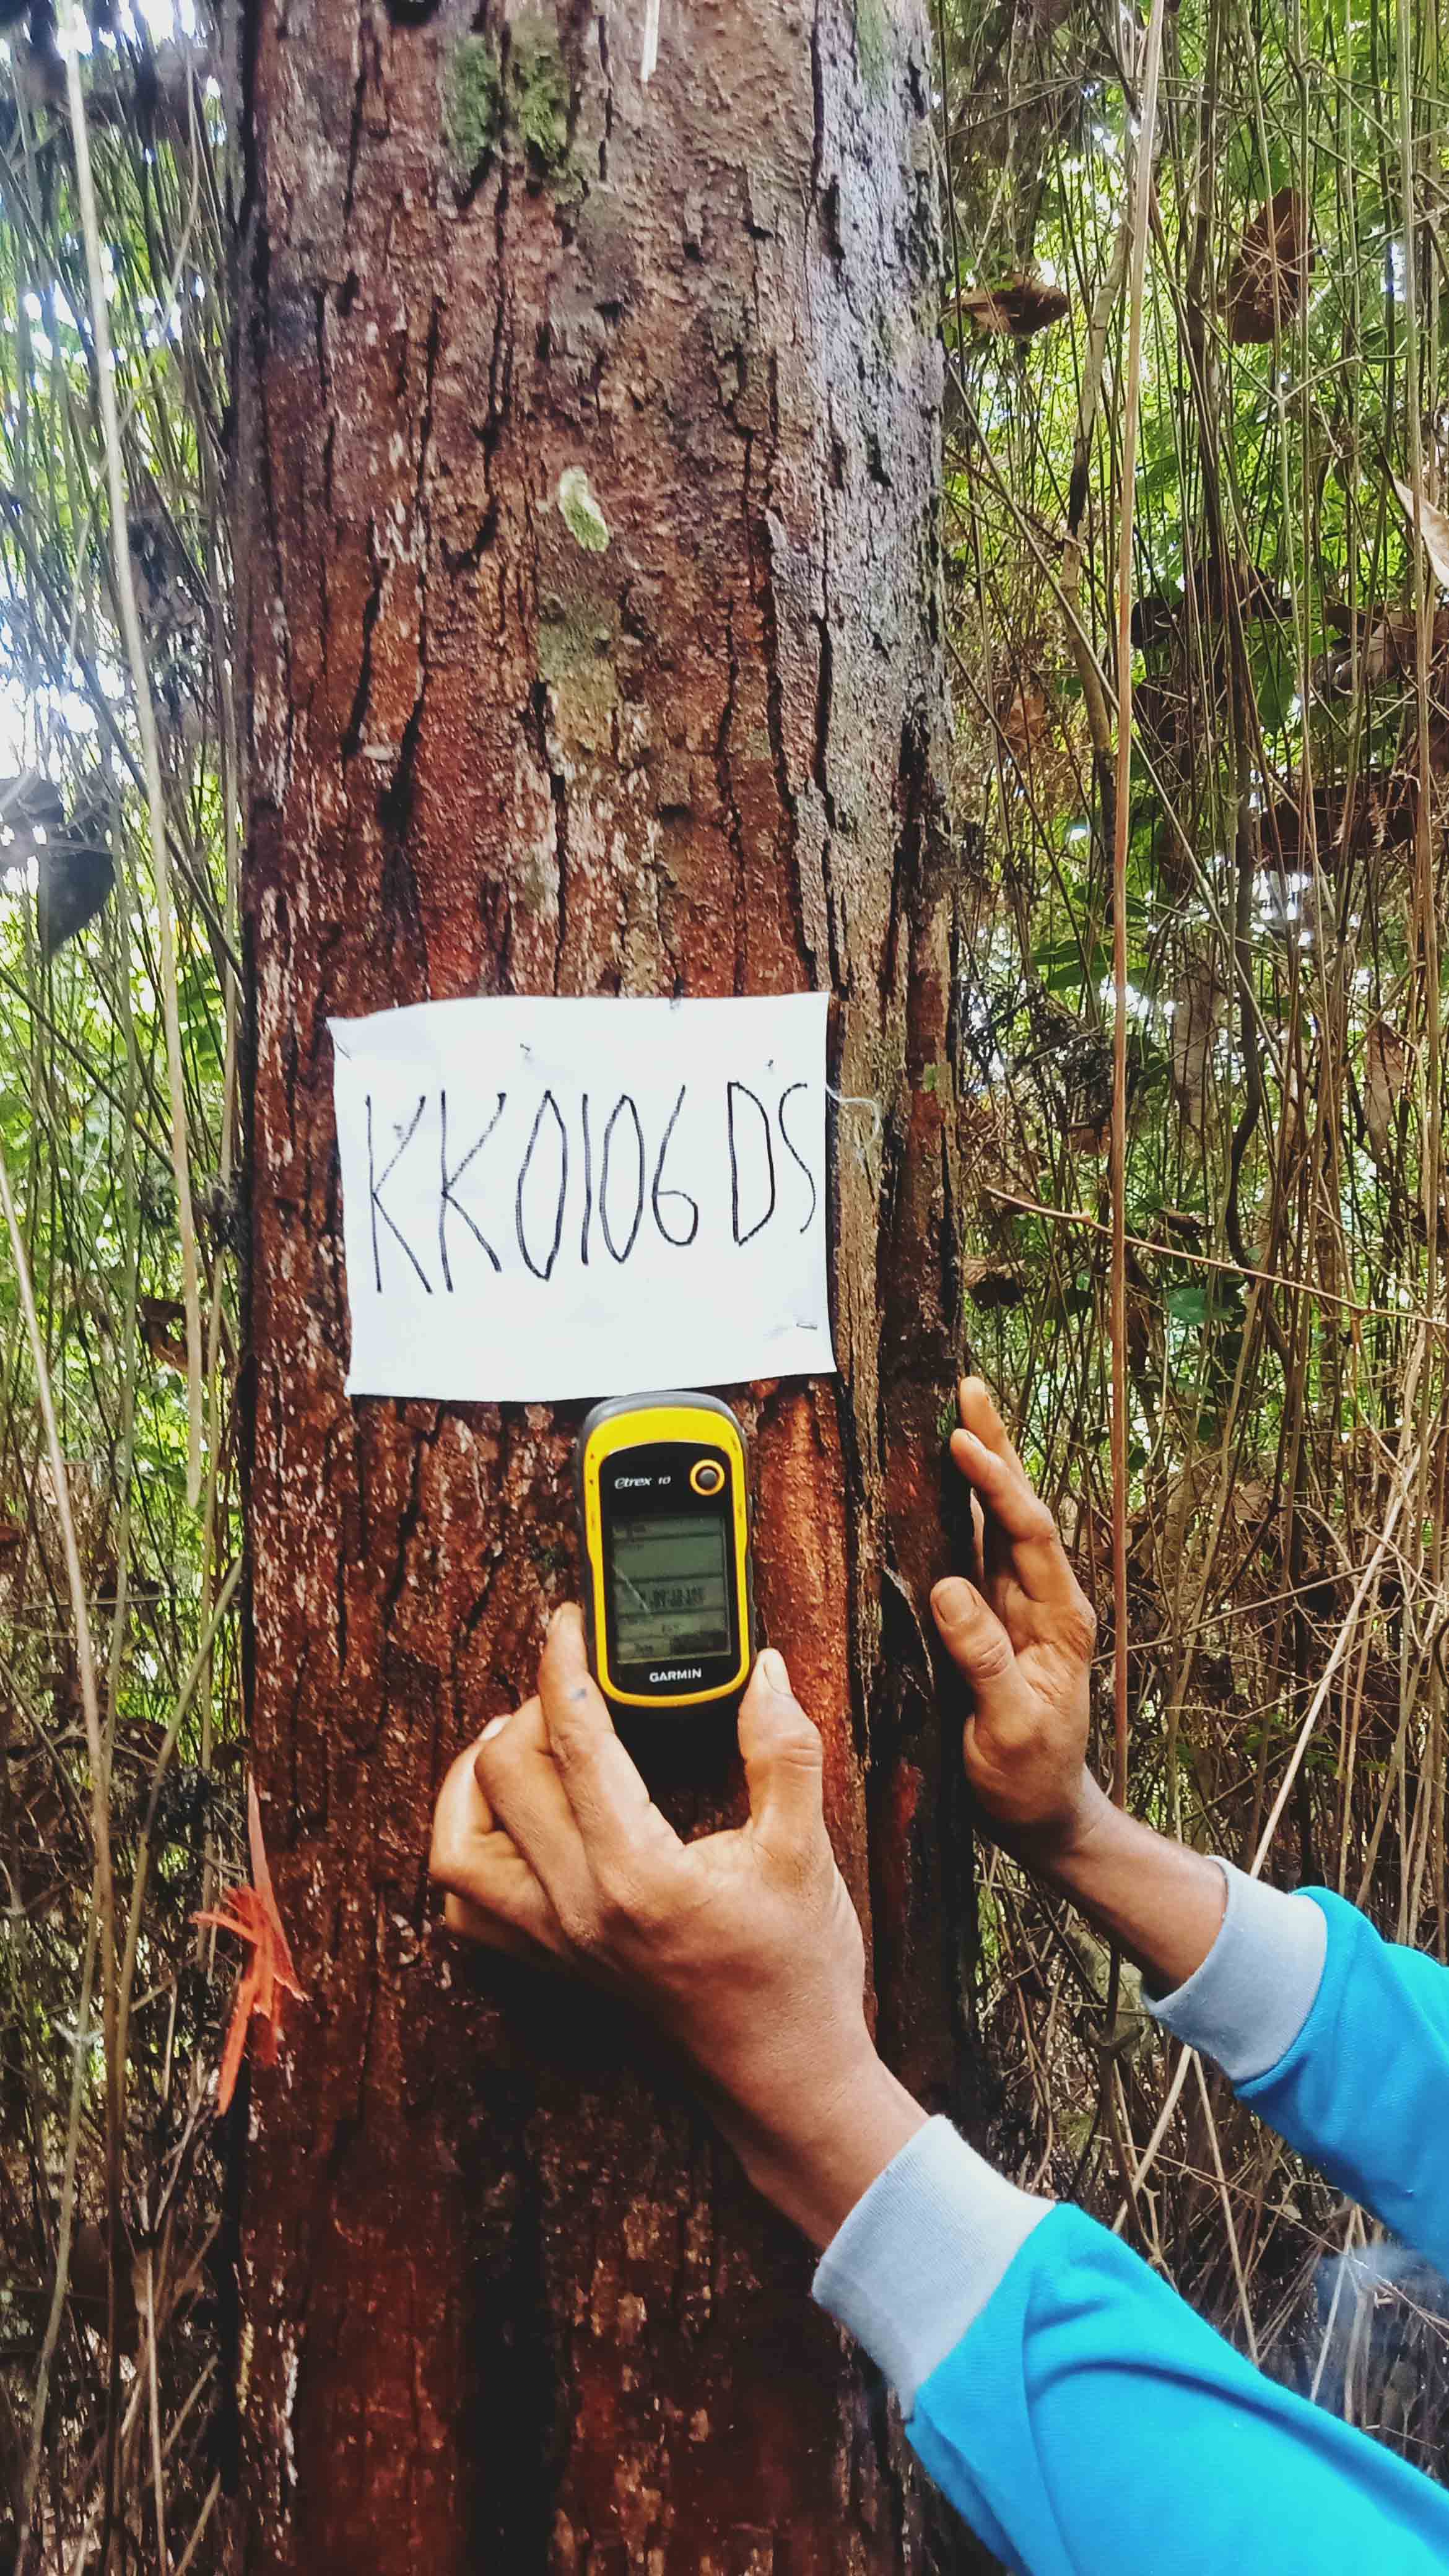 KK0106 DS
etrex 10
GARMIN